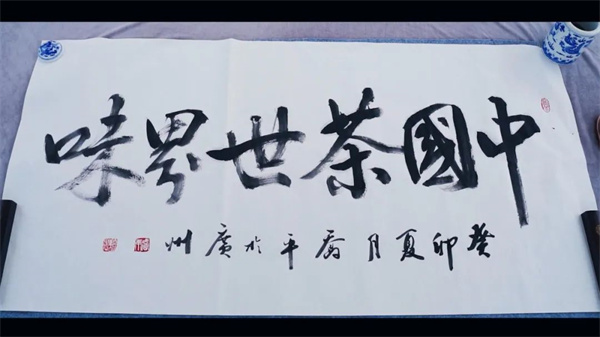 中國茶世界味
癸卯夏月平於廣州